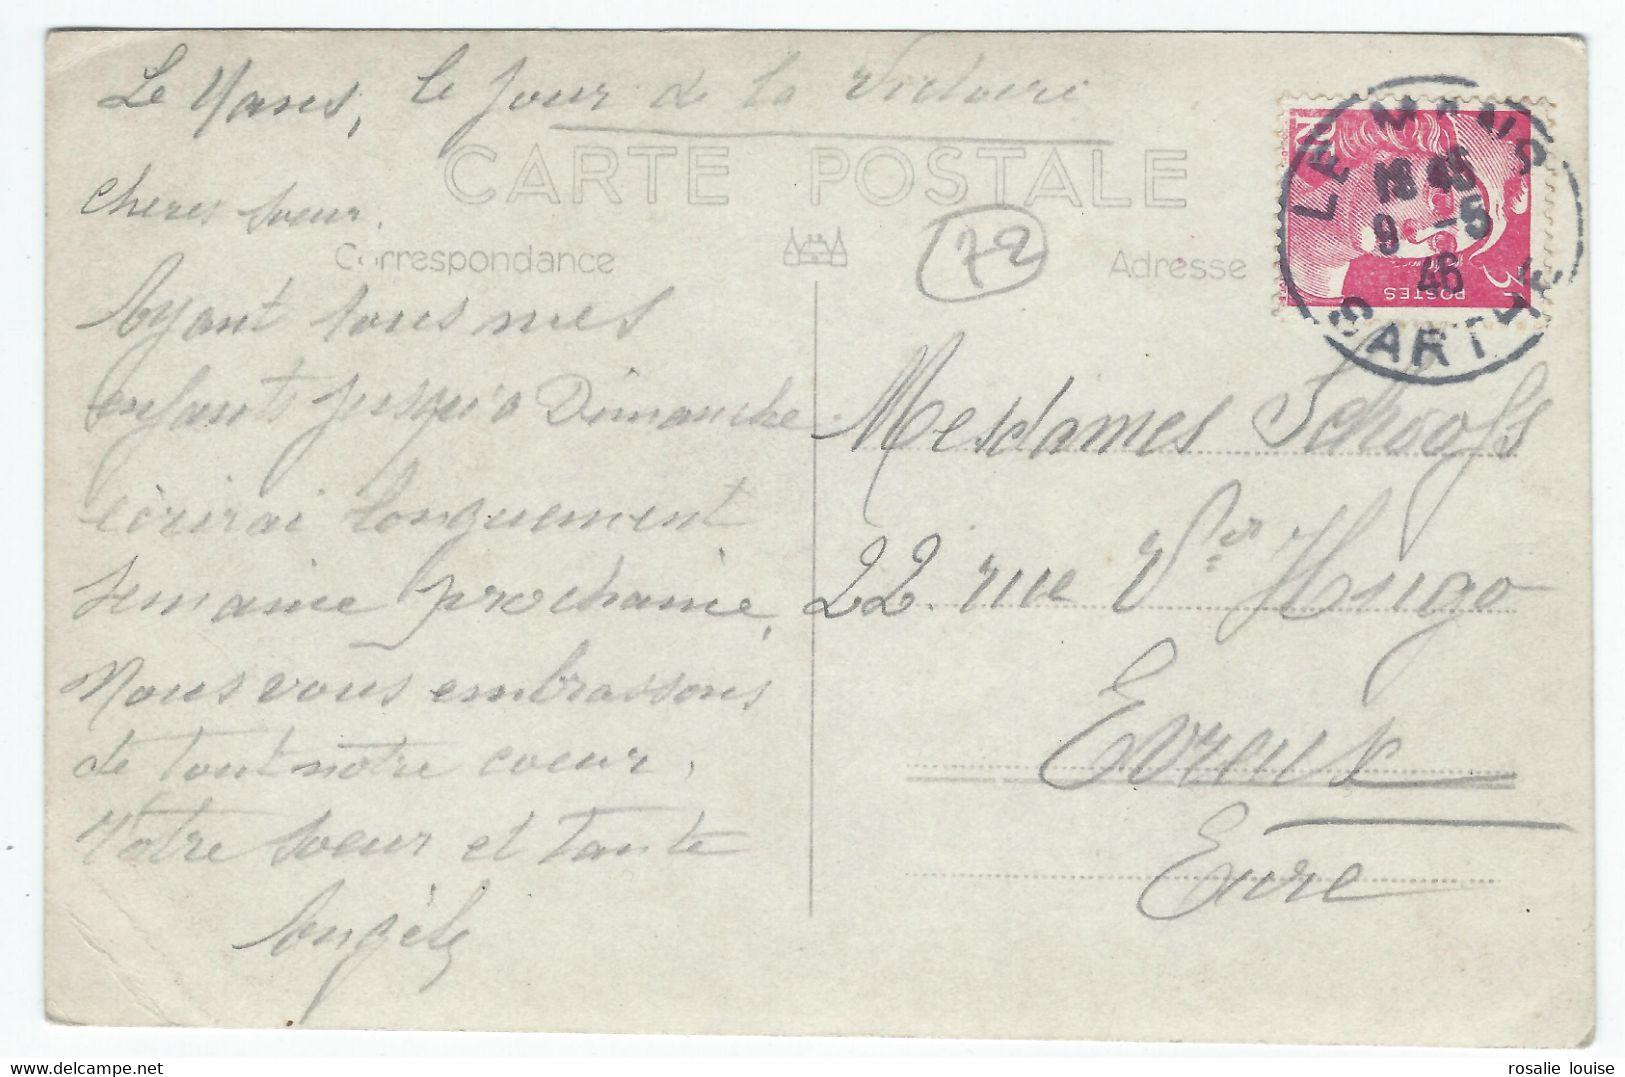 Le Mans, le jour de la Victoire
CARTE POSTALE
Cheres Soeur.
Correspondance
72
Adresse
LE MANS
18 45
9 -5
46
SARTHE
3
POSTES
Ayant tous mes
enfants jusqu'a Dimanche
écrirai longuement
semaine prochaine,
Nous vous embrassons
de tout notre coeur,
Votre Soeur et Tante
Angèle
Mesdames Schoofs
22. rue Vor Hugo
Evreux
Eure
rosalie louise